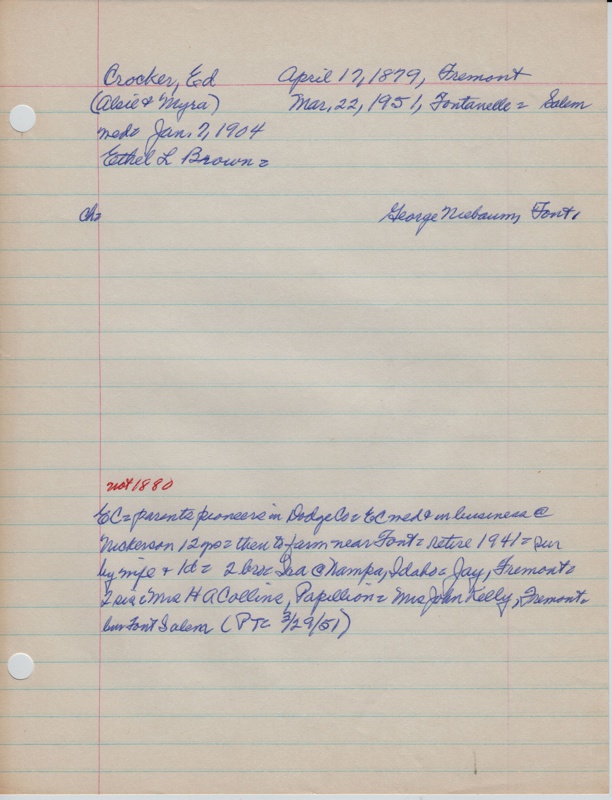 Crocker, Ed April 17, 1879, Fremont
(Alsie & Myra) Mar, 22, 1951, Fontanelle = Salem
med= Jan. 7, 1904
Ethel L Brown =
Ch= George Niebaum, Font.
not 1880
EC= parents pioneers in Dodge Co= EC med & in business @
Nickerson 12 yo= then to farm near Font= retire 1941= sur
by wife & 1d= 2 bro= Ira @ Nampa, Idaho= Jay, Fremont=
2 sis= Mrs H A Collins, Papillion= Mrs John Kelly, Fremont=
bur Font Salem (PT= 3/29/51)